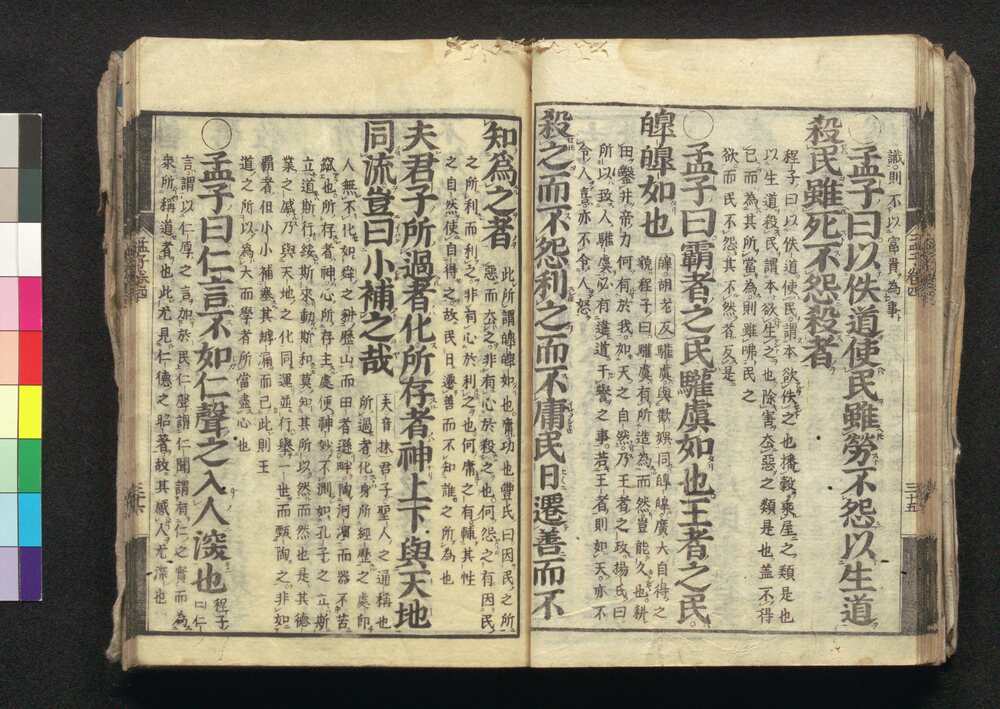 識則不以富貴為事
○孟子曰以佚道使民雖勞不怨以生道
殺民雖死不怨殺者
程子曰以佚道使民謂本欲佚之也播穀乗屋之類是也
以生道殺民謂本欲生之也除害去惡之類是也盖不得
已而為其所當為則雖咈民之
欲而民不怨其不然者反是
○孟子曰霸者之民驩虞如也王者之民
皥皥如也
皥胡老反驩虞與歡娯同皥皥廣大自得之
貌程子曰驩虞有所造為而然豈能久也耕
田鑿井帝力何有於我如天之自然乃王者之政楊氏曰
所以致人驩虞必有違道干譽之事若王者則如天亦不
令人喜亦不令人怒
殺之而不怨利之而不庸民日遷善而不
知為之者
此所謂皥皥如也庸功也豐氏曰因民之所
惡而去之非有心於殺之也何怨之有因民
之所利而利之非有心於利之也何庸之有輔其性
之自然使自得之故民日遷善而不知誰之所為也
夫君子所過者化所存者神上下與天地
同流豈曰小補之哉
夫音扶君子聖人之通稱也
所過者化身所經歴之處即
人無不化如舜之耕歴山而田者遜畔陶河濱而器不苦
窳也所存者神心所存主處便神妙不測如孔子之立斯
立道斯行綏斯來動斯和莫知其所以然而然也是其德
業之盛乃與天地之化同運並行舉一世而甄陶之非如
霸者但小小補塞其罅漏而已此則王
道之所以為大而學者所當盡心也
○孟子曰仁言不如仁聲之入人深也
程子
曰仁
言謂以仁厚之言加於民仁聲謂仁聞謂有仁之實而為
衆所稱道者也此尤見仁德之昭著故其感人尤深也